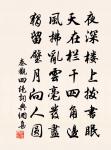 夜深楼上拨书眠
天在栏干四角边
风拂乱云毫发尽
独留璧月向人圆
秦观四绝词典网集